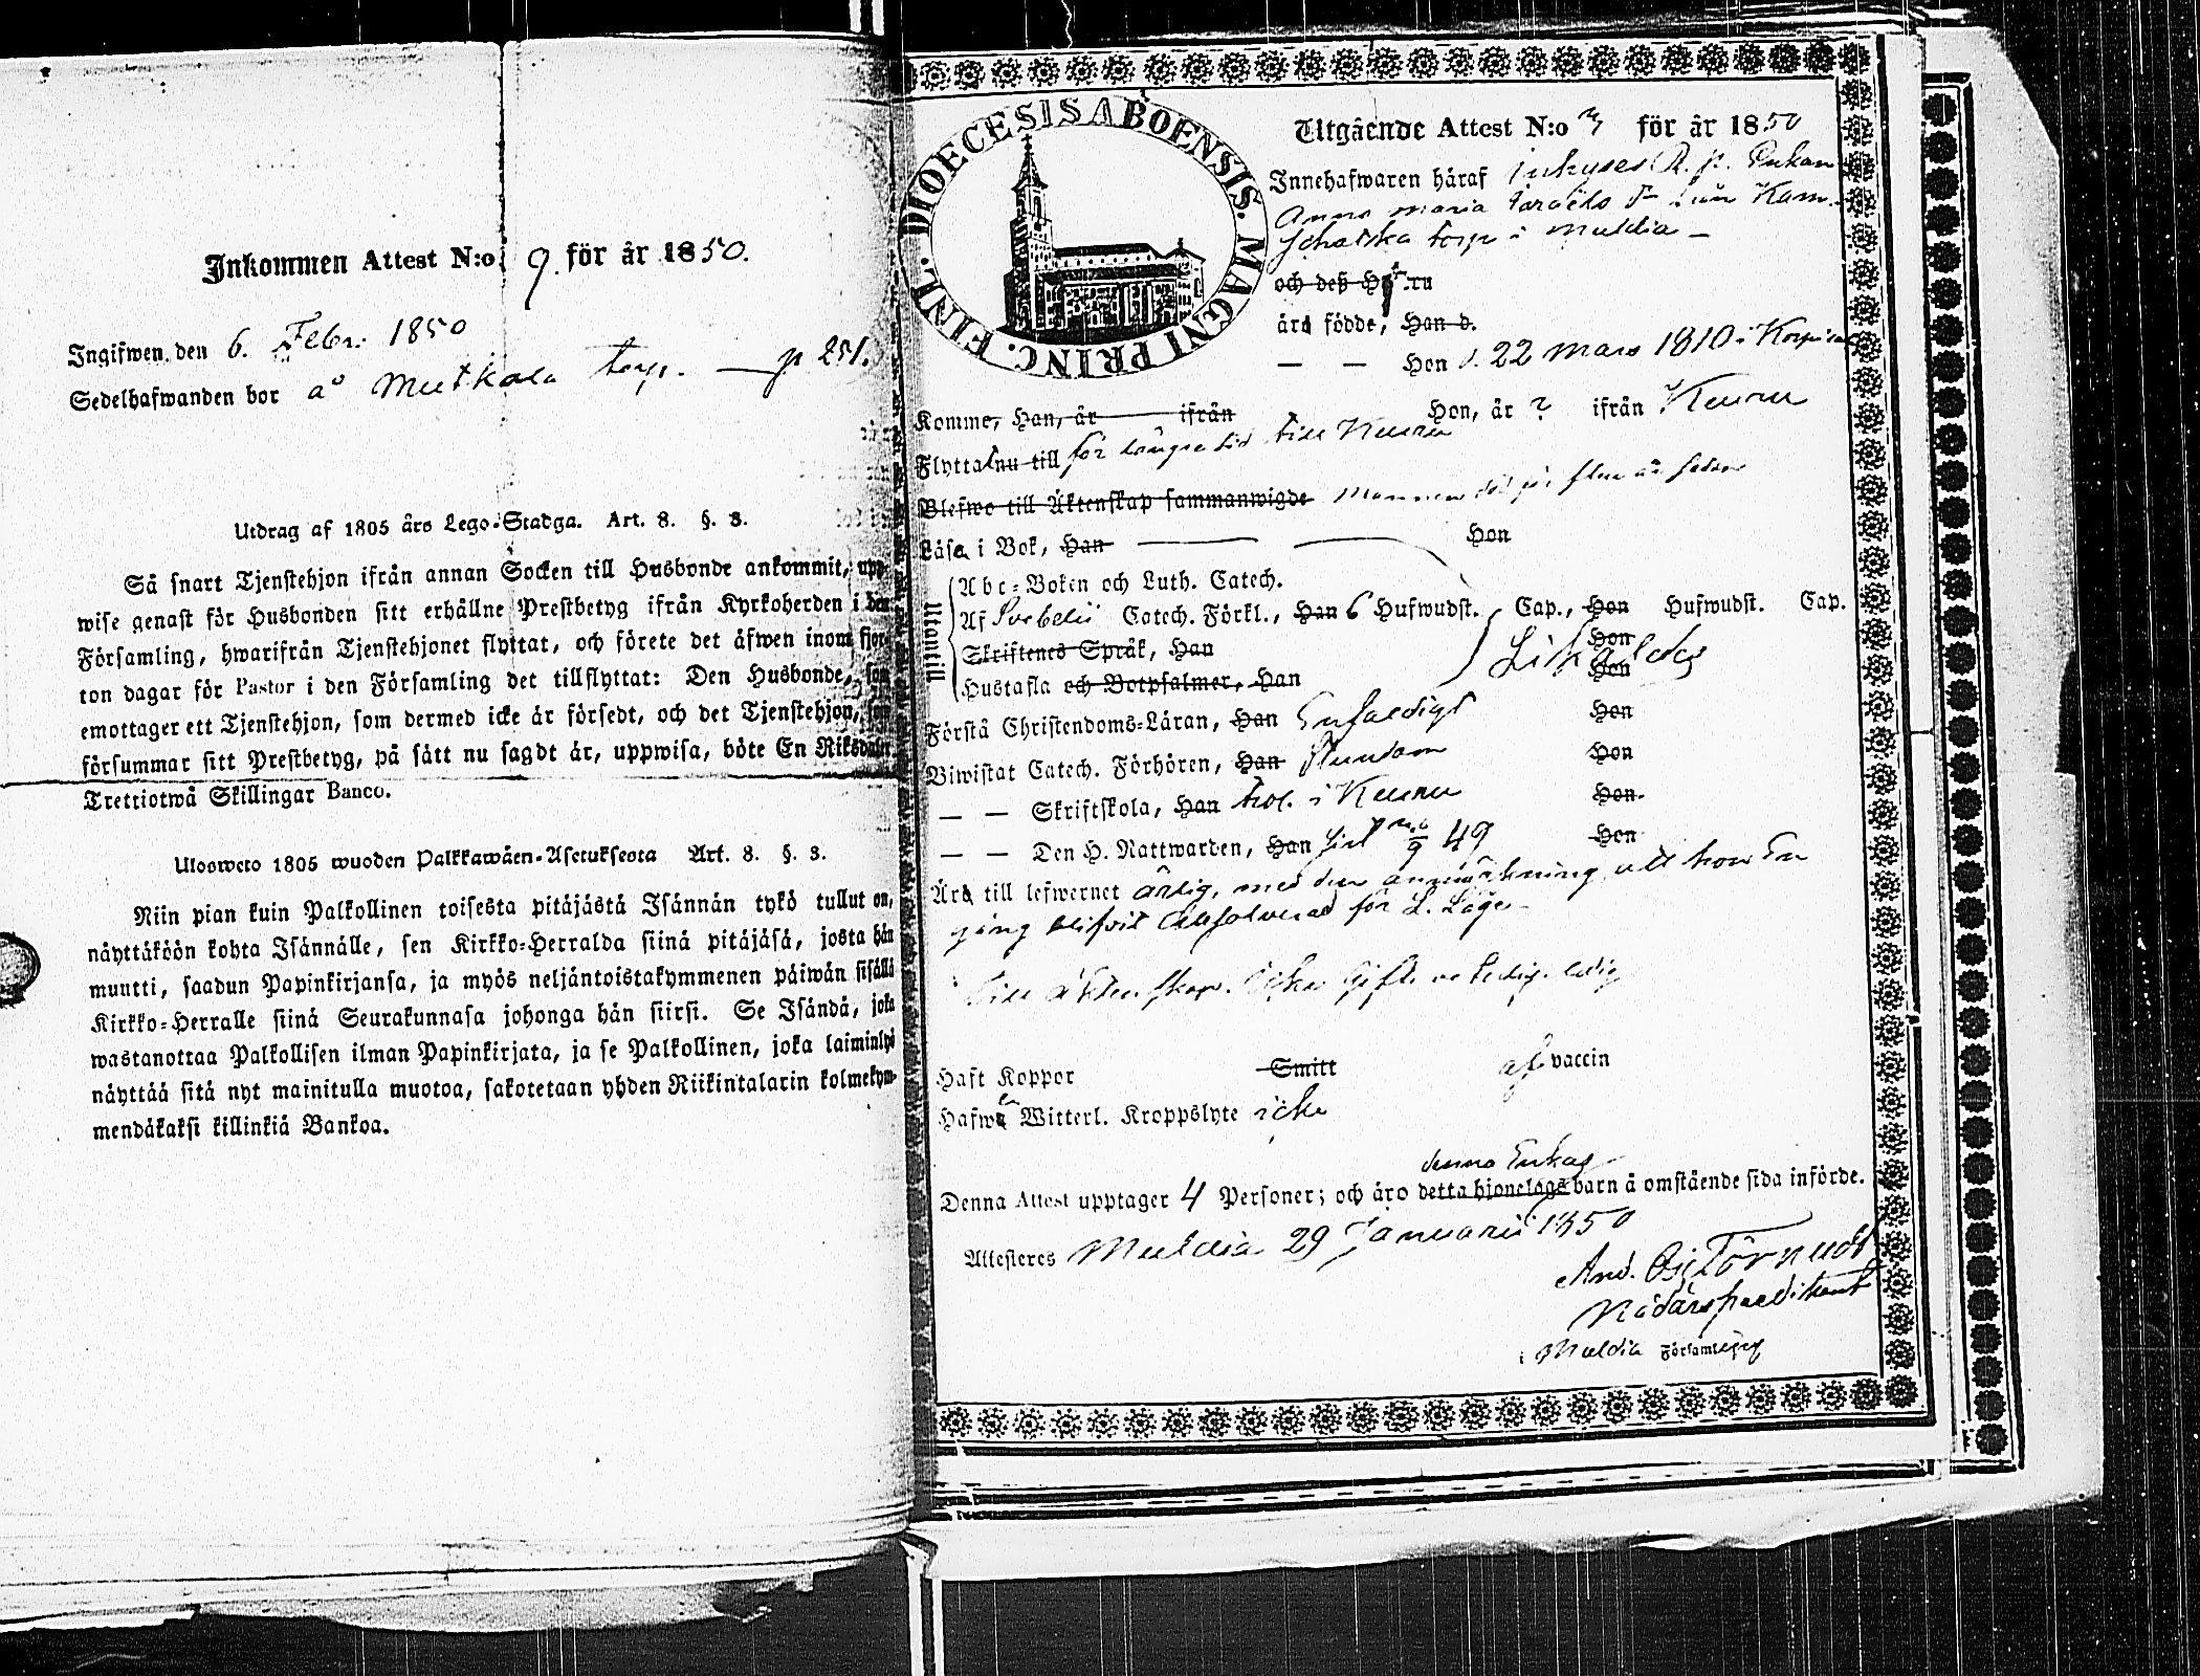 Inkommen Attest N:o 9. för år 1850.
Ingifwen den 6. Febr. 1850
Sedelhafwanden bor å Mutkala torp. — p 251.
Utdrag af 1805 års Lego-Stadga. Art. 8. §. 3.
Så snart Tjenstehjon ifrån annan Socken till Husbonde ankommit, upp-
wise genast för Husbonden sitt erhållne Prestbetyg ifrån Kyrkoherden i den
Församling, hwarifrån Tjenstehjonet flyttat, och förete det äfwen inom fjor-
ton dagar för Pastor i den Församling det tillflyttat: Den Husbonde, som
emottager ett Tjenstehjon, som dermed icke är försedt, och det Tjenstehjon, som
försummar sitt Prestbetyg, på sätt nu sagdt är, uppwisa, böte En Riksdaler
Trettiotwå Skillingar Banco.
Ulosweto 1805 wuoden Palkkawäen-Asetuksesta Art. 8. §. 3.
Niin pian kuin Palkollinen toisesta pitäjästä Isännän tykö tullut on,
näyttäköön kohta Isännälle, sen Kirkko-Herralda siinä pitäjäsä, josta hän
muutti, saadun Papinkirjansa, ja myös neljäntoistakymmenen päiwän sisällä
Kirkko-Herralle siinä Seurakunnasa johonga hän siirsi. Se Isändä, joka
wastanottaa Palkollisen ilman Papinkirjata, ja se Palkollinen, joka laiminlyö
näyttää sitä nyt mainitulla muotoa, sakotetaan yhden Riikintalarin kolmekym-
mendäkaksi killinkiä Bankoa.
DIOECESIS ABOENSIS. MAGNI PRINC. FINL.
Utgående Attest N:o 3 för år 1850
Innehafwaren häraf Enkan
Anna Maria Israels d:r från Kam-
schatska torp i Muldia —
och deß H
äro födde, Han d.
— — Hon d. 22 Mars 1810 i
Komme, Han, år ifrån Hon, år ? ifrån Keuru
Flytta nu till för längre tid till Keuru
Blefwo till Äktenskap sammanwigde Mannen död för flere år sedan
Läsa i Bok, Han Hon
Utantill
Abc-Boken och Luth. Catech.
Af Svebelii Catech. Förkl., Han 6 Hufwudst. Cap., Hon Hufwudst. Cap.
Skriftenes Språk, Han Hon
Hustafla och Botpsalmer, Han Hon
Förstå Christendoms-Läran, Han Enfaldigt Hon
Biwistat Catech. Förhören, Han stundom Hon
— — Skriftskola, Han i Keuru Hon
— — Den H. Nattwarden, Han sist 49 Hon
Äro till lefwernet ärlig, med den anmärkning att hon En
gång blifvit absolverad för L. Läge
till äktenskap. ledig
Haft Koppor Smitt af vaccin
Hafwa Witterl. Kroppslyte icke
denna Enkas
Denna Attest upptager 4 Personer; och äro detta hjonelags barn å omstående sida införde.
Attesteres Muldia 29 Januarii 1850
And. Törnudd
Nådårspredikant
i Muldia Församling